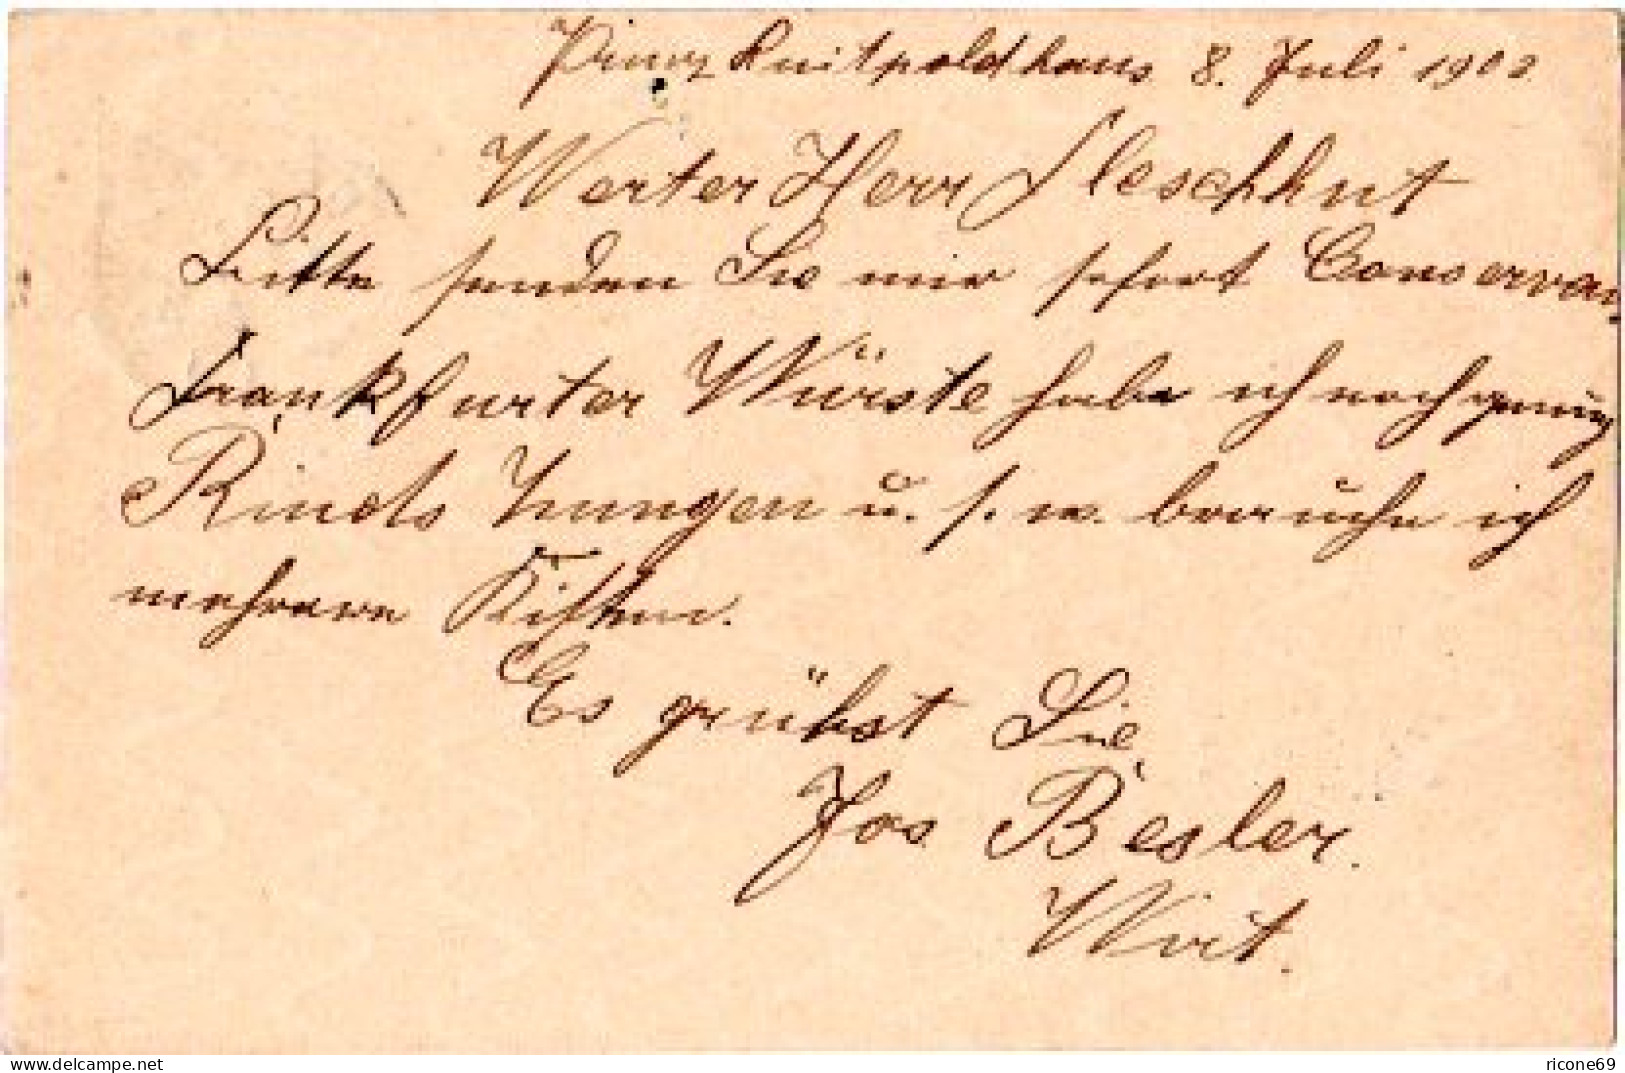 Prinz Luitpoldhaus 8. Juli 1902
Werter Herr Fleschhut
Bitte senden Sie mir sofort Conserven,
Frankfurter Würste habe ich noch genug
Rinds Zungen u. s. w. brauche ich
mehrere Kisten.
Es grüßst Sie
Jos Besler.
Wirt.
www.delcampe.net
ricone69